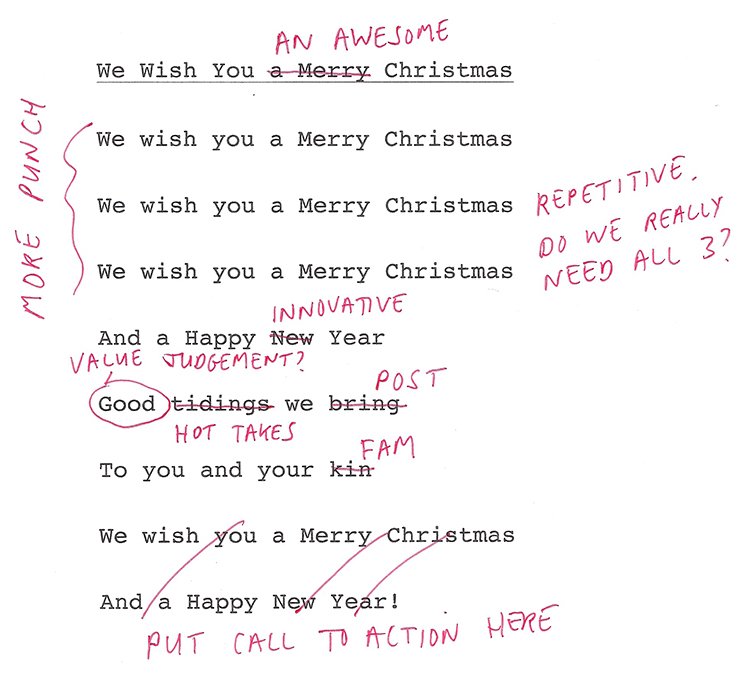 AN AWESOME
We Wish You a Merry Christmas
MORE PUNCH
We wish you a Merry Christmas
We wish you a Merry Christmas
REPETITIVE.
DO WE REALLY
NEED ALL 3?
We wish you a Merry Christmas
INNOVATIVE
And a Happy New Year
VALUE JUDGEMENT?
POST
Good tidings we bring
HOT TAKES
FAM
To you and your kin
We wish you a Merry Christmas
And a Happy New Year!
PUT CALL TO ACTION HERE